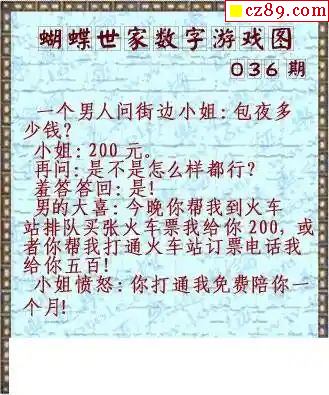 cz89.com
蝴蝶世家数字游戏图
036 期
一个男人问街边小姐: 包夜多
少钱?
小姐: 200 元。
再问: 是不是怎么样都行?
羞答答回: 是!
男的大喜: 今晚你帮我到火车
站排队买张火车票我给你 200, 或
者你帮我打通火车站订票电话我
给你五百!
小姐愤怒: 你打通我免费陪你一
个月!